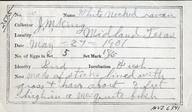 No. Name White Necked raven
Collector J.M. King
Locality Midland Texas
Date May 27 - 1901
No. of Eggs in Set 5 Set Mark
Identity Bird Incubation Fresh
nest of sticks lined with
grass & hair about 7 feet
high in a mesquite bush